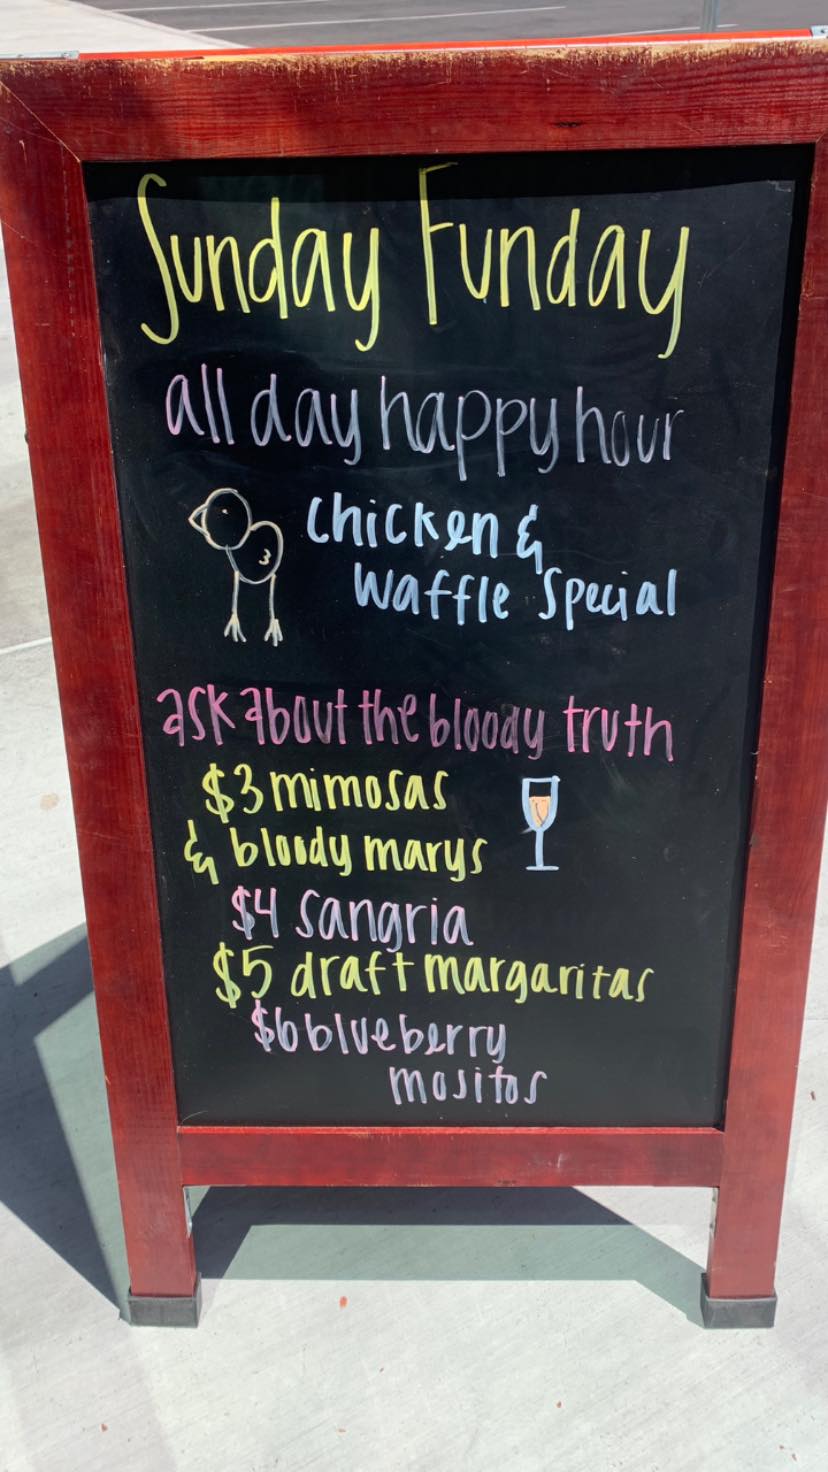 Sunday Funday
all day happy hour
Chicken &
Waffle Special
ask about the bloody truth
$3 mimosas
& bloody marys
$4 sangria
$5 draft margaritas
$6 blueberry
mojitos